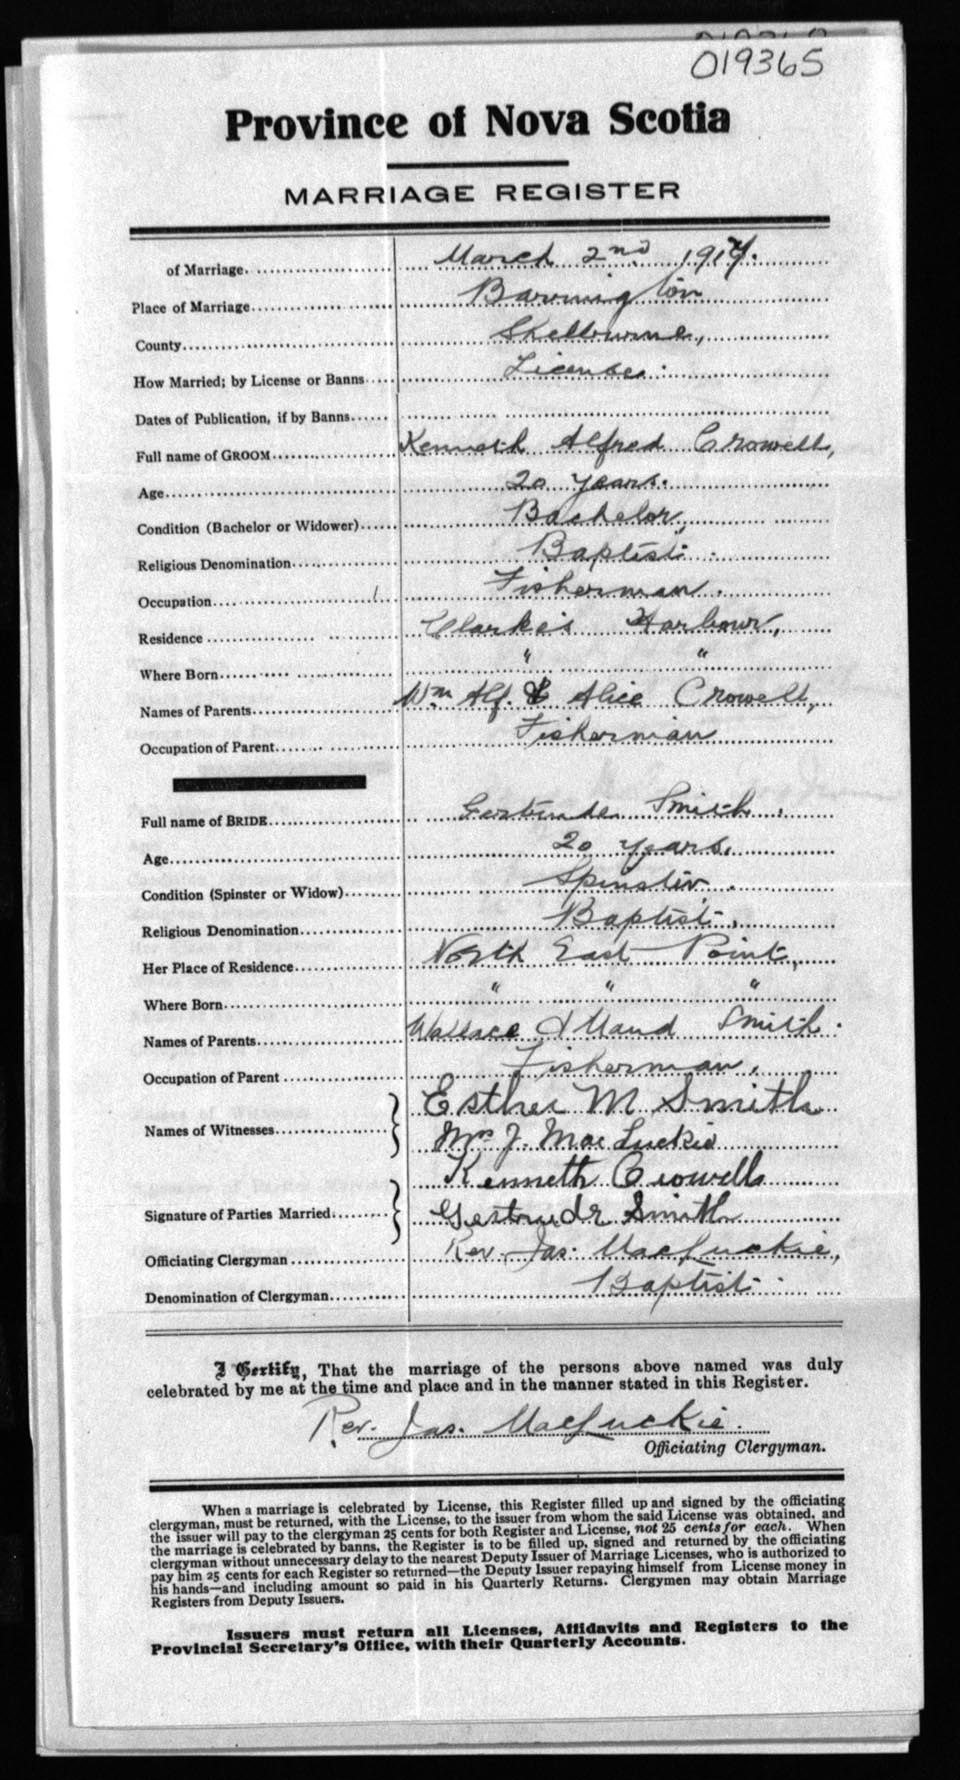 019365
Province of Nova Scotia
MARRIAGE REGISTER
of Marriage. March 2nd 1917.
Place of Marriage Barrington
County Shelburne,
How Married; by License or Banns License.
Dates of Publication, if by Banns
Full name of GROOM Kenneth Alfred Crowell,
Age 20 years.
Condition (Bachelor or Widower) Bachelor,
Religious Denomination Baptist.
Occupation Fisherman.
Residence Clarke's Harbour,
Where Born " "
Names of Parents Wm Alf. & Alice Crowell,
Occupation of Parent Fisherman
Full name of BRIDE Gertrude Smith.
Age 20 years.
Condition (Spinster or Widow) Spinster.
Religious Denomination Baptist.
Her Place of Residence North East Point,
Where Born " " "
Names of Parents Wallace & Maud Smith.
Occupation of Parent Fisherman.
Names of Witnesses Esther M Smith
Mrs J. MacLuckie
Kenneth Crowell
Signature of Parties Married Gertrude Smith
Officiating Clergyman Rev. Jas. MacLuckie,
Denomination of Clergyman Baptist.
I Certify, That the marriage of the persons above named was duly
celebrated by me at the time and place and in the manner stated in this Register.
Rev. Jas. MacLuckie.
Officiating Clergyman.
When a marriage is celebrated by License, this Register filled up and signed by the officiating
clergyman, must be returned, with the License, to the issuer from whom the said License was obtained, and
the issuer will pay to the clergyman 25 cents for both Register and License, not 25 cents for each. When
the marriage is celebrated by banns, the Register is to be filled up, signed and returned by the officiating
clergyman without unnecessary delay to the nearest Deputy Issuer of Marriage Licenses, who is authorized to
pay him 25 cents for each Register so returned—the Deputy Issuer repaying himself from License money in
his hands—and including amount so paid in his Quarterly Returns. Clergymen may obtain Marriage
Registers from Deputy Issuers.
Issuers must return all Licenses, Affidavits and Registers to the
Provincial Secretary's Office, with their Quarterly Accounts.